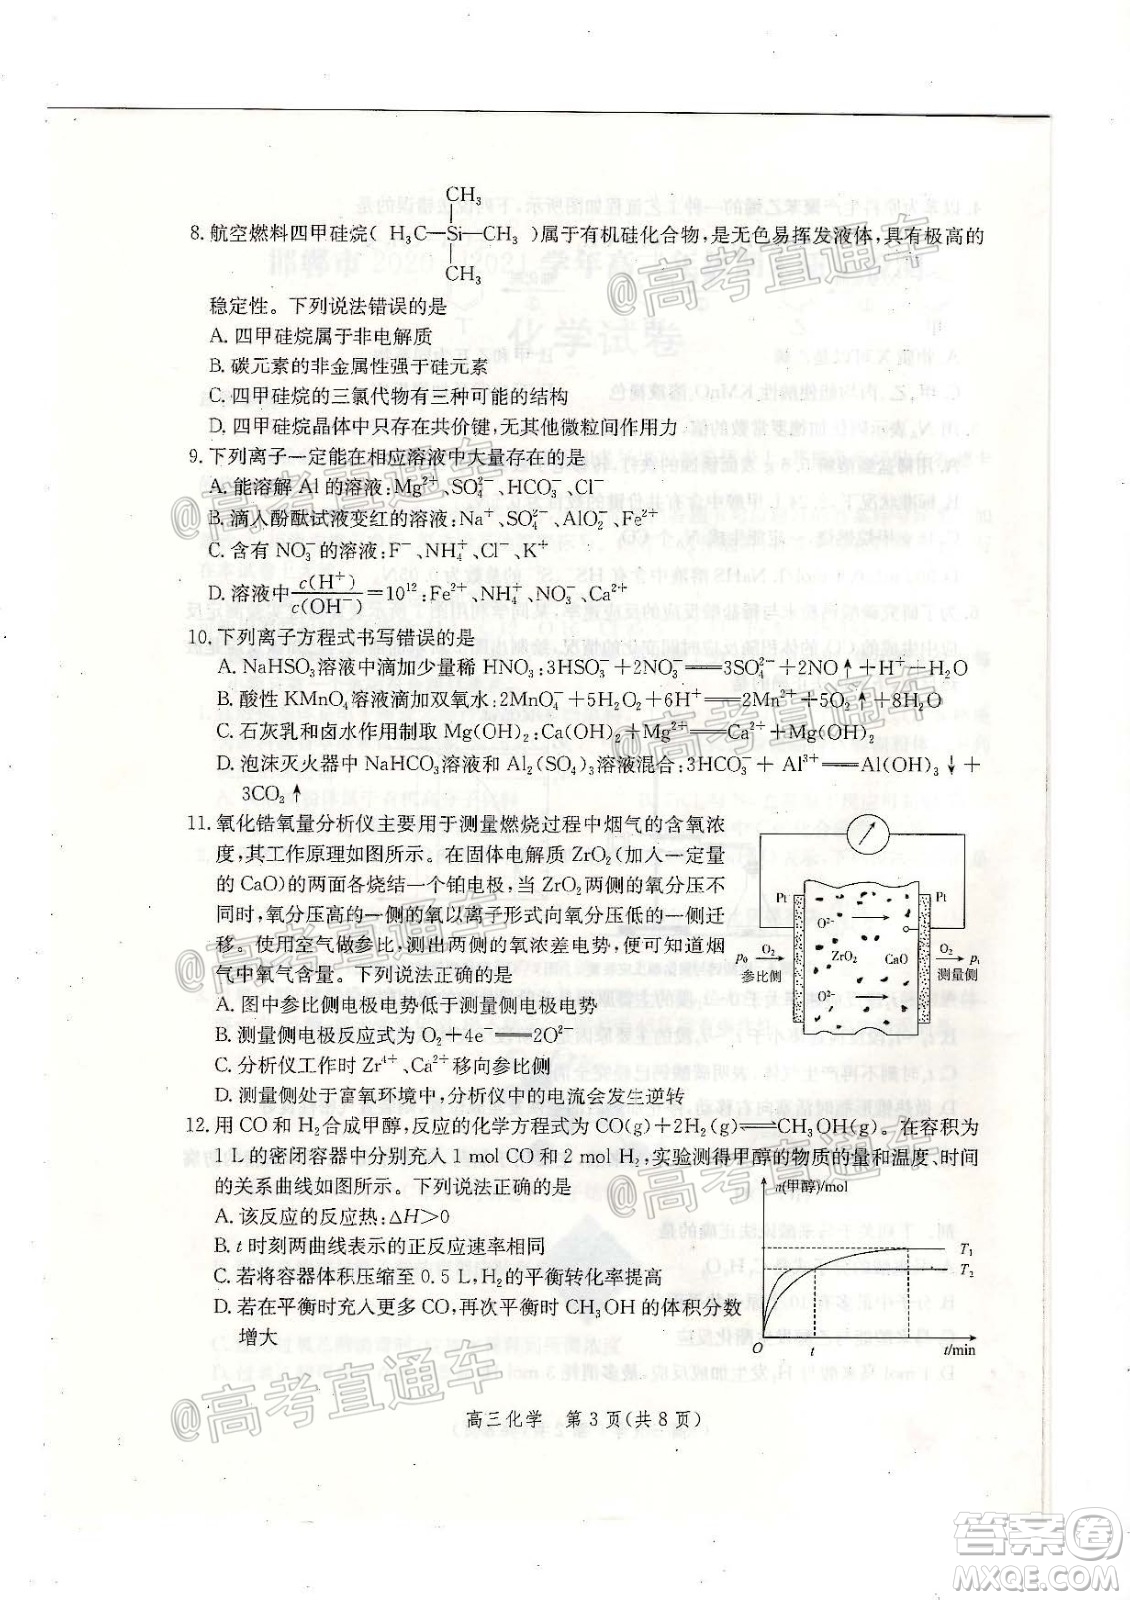 CH₃
8. 航空燃料四甲硅烷( H₃C—Si—CH₃ )属于有机硅化合物,是无色易挥发液体,具有极高的
CH₃
稳定性。下列说法错误的是
A. 四甲硅烷属于非电解质
B. 碳元素的非金属性强于硅元素
C. 四甲硅烷的三氯代物有三种可能的结构
D. 四甲硅烷晶体中只存在共价键,无其他微粒间作用力
9. 下列离子一定能在相应溶液中大量存在的是
A. 能溶解 Al 的溶液:Mg²⁺、SO₄²⁻、HCO₃⁻、Cl⁻
B. 滴入酚酞试液变红的溶液:Na⁺、SO₄²⁻、AlO₂⁻、Fe²⁺
C. 含有 NO₃⁻的溶液:F⁻、NH₄⁺、Cl⁻、K⁺
D. 溶液中 c(H⁺)/c(OH⁻)=10¹²:Fe²⁺、NH₄⁺、NO₃⁻、Ca²⁺
10. 下列离子方程式书写错误的是
A. NaHSO₃溶液中滴加少量稀 HNO₃:3HSO₃⁻+2NO₃⁻══3SO₄²⁻+2NO↑+H⁺+H₂O
B. 酸性 KMnO₄溶液滴加双氧水:2MnO₄⁻+5H₂O₂+6H⁺══2Mn²⁺+5O₂↑+8H₂O
C. 石灰乳和卤水作用制取 Mg(OH)₂:Ca(OH)₂+Mg²⁺══Ca²⁺+Mg(OH)₂
D. 泡沫灭火器中 NaHCO₃溶液和 Al₂(SO₄)₃溶液混合:3HCO₃⁻+Al³⁺══Al(OH)₃↓+
3CO₂↑
11. 氧化锆氧量分析仪主要用于测量燃烧过程中烟气的含氧浓
度,其工作原理如图所示。在固体电解质 ZrO₂(加入一定量
的 CaO)的两面各烧结一个铂电极,当 ZrO₂两侧的氧分压不
同时,氧分压高的一侧的氧以离子形式向氧分压低的一侧迁
移。使用空气做参比,测出两侧的氧浓差电势,便可知道烟
气中氧气含量。下列说法正确的是
A. 图中参比侧电极电势低于测量侧电极电势
B. 测量侧电极反应式为 O₂+4e⁻══2O²⁻
C. 分析仪工作时 Zr⁴⁺、Ca²⁺移向参比侧
D. 测量侧处于富氧环境中,分析仪中的电流会发生逆转
Pt
Pt
O²⁻
p₀ O₂
参比侧
ZrO₂
CaO
O₂ p₁
测量侧
O²⁻
12. 用 CO 和 H₂合成甲醇,反应的化学方程式为 CO(g)+2H₂(g)⇌CH₃OH(g)。在容积为
1 L 的密闭容器中分别充入 1 mol CO 和 2 mol H₂,实验测得甲醇的物质的量和温度、时间
的关系曲线如图所示。下列说法正确的是
A. 该反应的反应热:ΔH>0
B. t 时刻两曲线表示的正反应速率相同
C. 若将容器体积压缩至 0.5 L,H₂的平衡转化率提高
D. 若在平衡时充入更多 CO,再次平衡时 CH₃OH 的体积分数
增大
n(甲醇)/mol
T₁
T₂
O
t
t/min
高三化学 第 3 页(共 8 页)
@高考直通车
@高考直通车
@高考直通车
@高考直通车
@高考直通车
@高考直通车
@高考直通车
答案卷
MXQE.COM